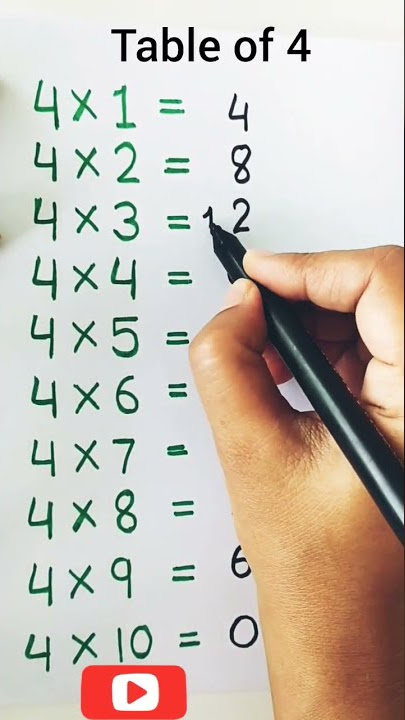 Table of 4
4 × 1 = 4
4 × 2 = 8
4 × 3 = 12
4 × 4 =
4 × 5 =
4 × 6 =
4 × 7 =
4 × 8 =
4 × 9 = 6
4 × 10 = 0